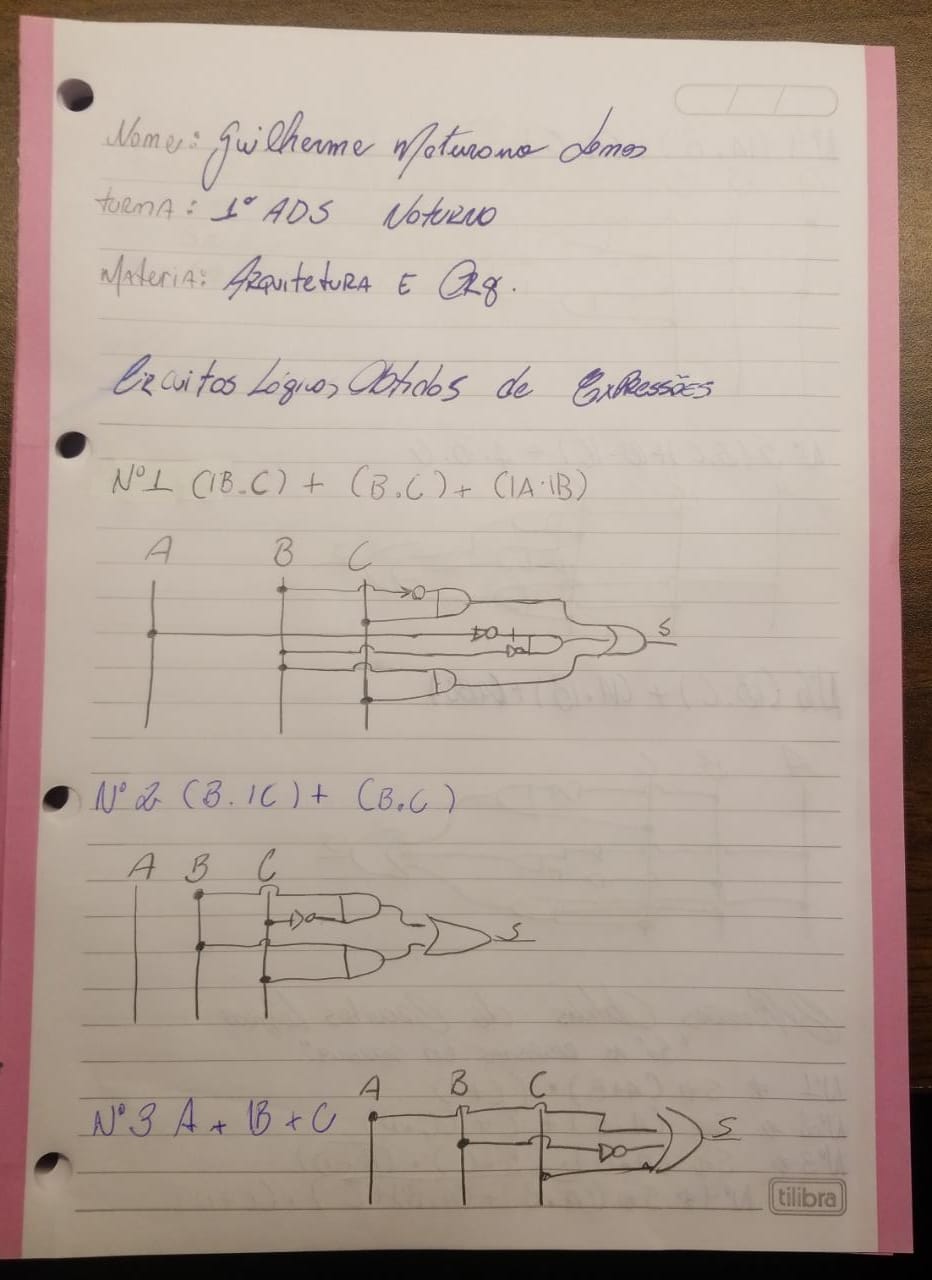 Nome: Guilherme Maturono Lemos
turma: 1º ADS Noturno
Materia: Arquitetura E Org.
Circuitos Lógicos Obtidos de Expressões
Nº1 (!B.C) + (B.C) + (!A.!B)
A B C
S
Nº 2 (B.!C) + (B.C)
A B C
S
A B C
Nº3 A + !B + C
S
tilibra